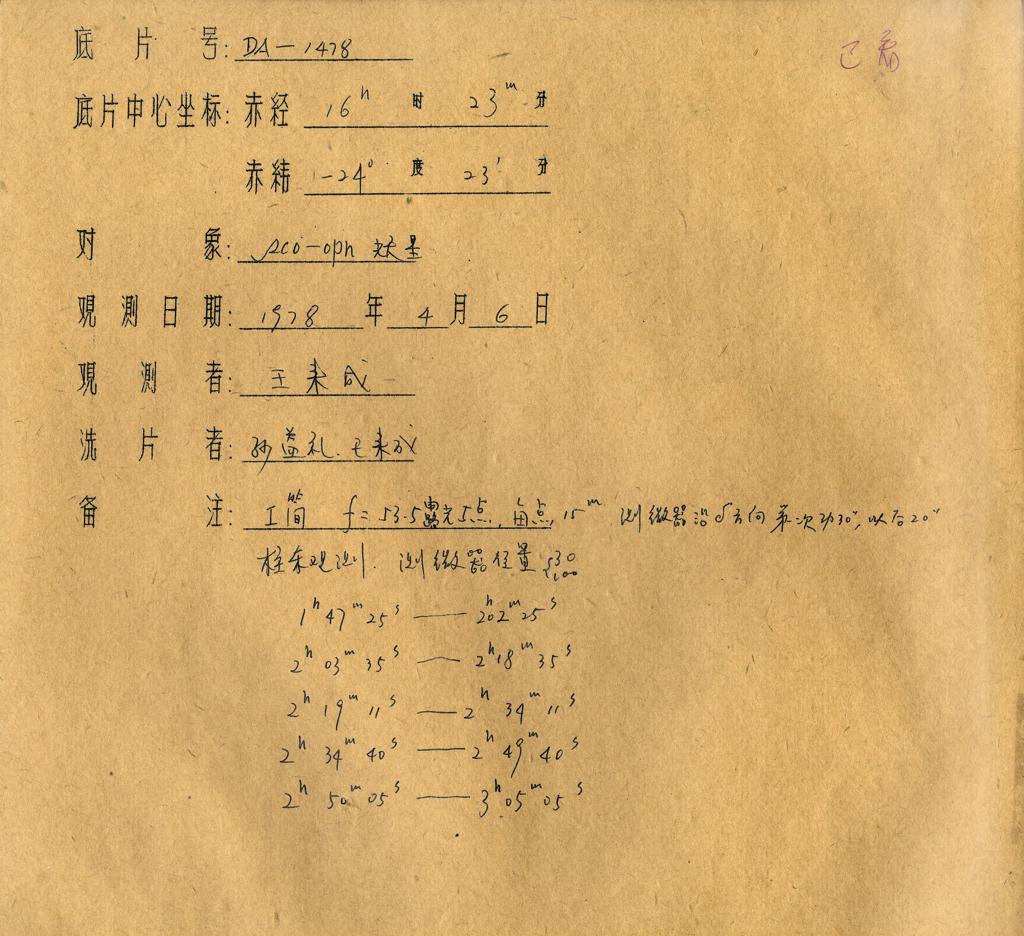 底片号: DA-1478
已看
底片中心坐标: 赤经 16ʰ 时 23ᵐ 分
赤纬 -24° 度 23′ 分
对象: sco-oph 妖星
观测日期: 1978 年 4 月 6 日
观测者: 王来成
洗片者: 孙益礼. 王来成
备注: I筒 f=53.5 露光5点, 每点15ᵐ 测微器沿δ方向 第一次动30″, 以后20″
观测. 测微器位量
1ʰ 47ᵐ 25ˢ — 2ʰ02ᵐ 25ˢ
2ʰ 03ᵐ 35ˢ — 2ʰ18ᵐ 35ˢ
2ʰ 19ᵐ 11ˢ — 2ʰ 34ᵐ 11ˢ
2ʰ 34ᵐ 40ˢ — 2ʰ 49ᵐ 40ˢ
2ʰ 50ᵐ 05ˢ — 3ʰ 05ᵐ 05ˢ